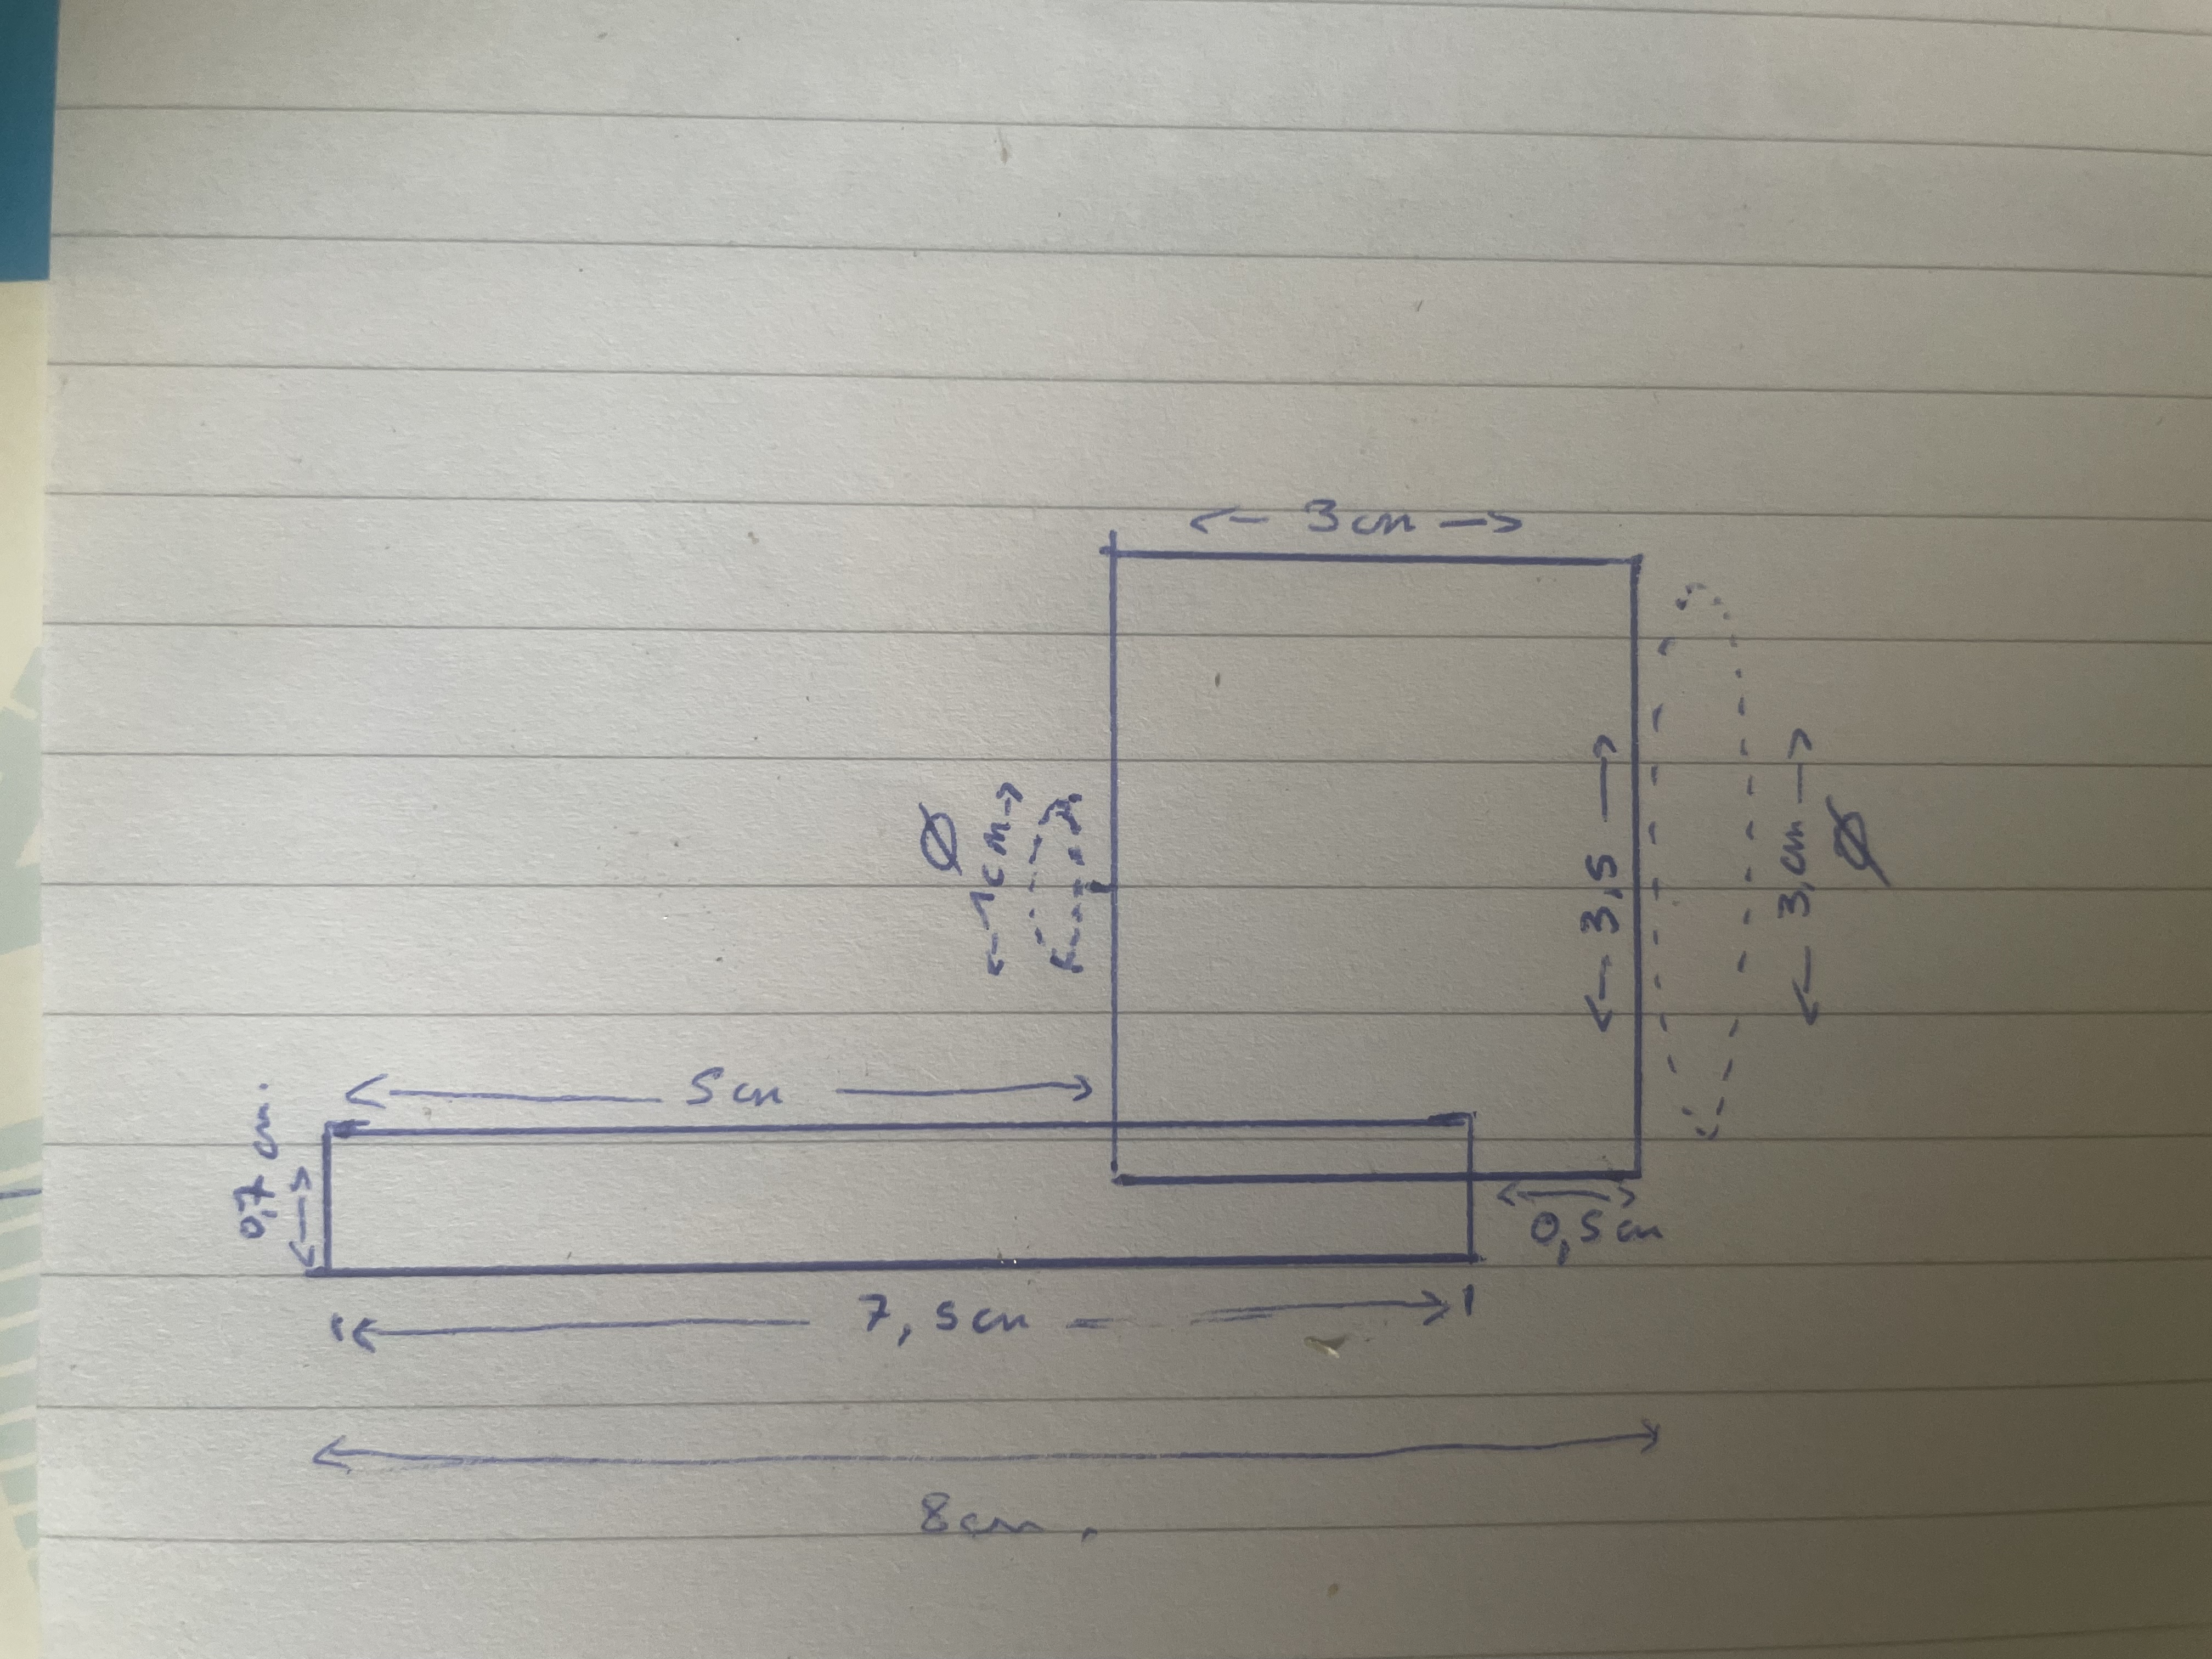 0,7 cm.
5 cm
7,5 cm
8 cm.
Ø
1 cm
3 cm
0,5 cm
3,5
3, cm
Ø